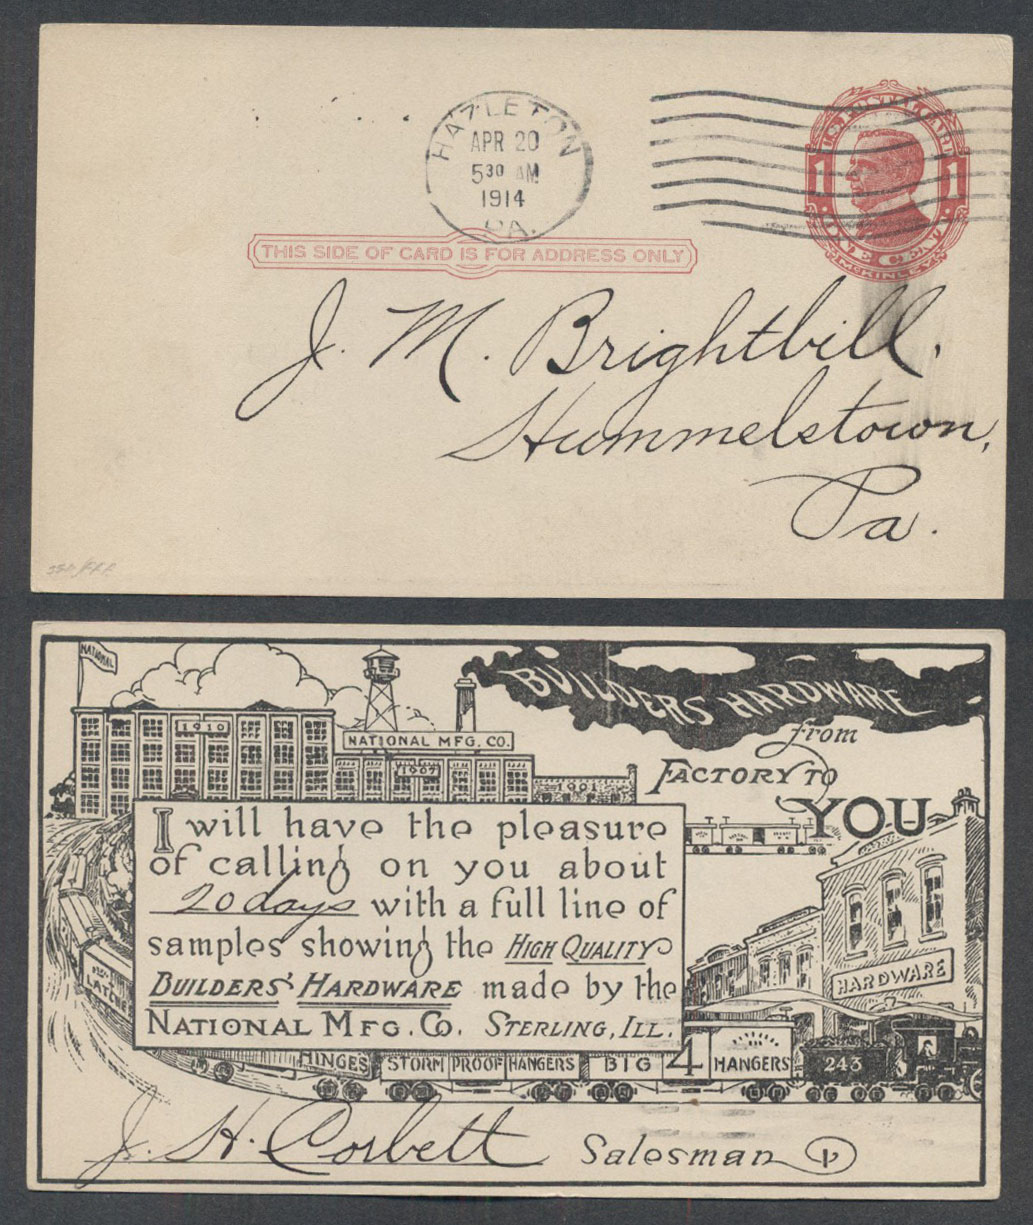 HAZLETON
APR 20
5 30 AM
1914
PA.
U.S. POSTAL CARD
1 1
ONE CENT
McKINLEY
THIS SIDE OF CARD IS FOR ADDRESS ONLY
J. M. Brightbill,
Hummelstown,
Pa.
NATIONAL
BUILDERS HARDWARE
from
FACTORY TO
YOU
1910
NATIONAL MFG. CO.
1907
1901
I will have the pleasure
of calling on you about
20 days with a full line of
samples showing the HIGH QUALITY
BUILDERS' HARDWARE made by the
NATIONAL MFG. CO. STERLING, ILL.
HARDWARE
LATCHES
HINGES
STORM PROOF HANGERS
BIG 4 HANGERS
243
J. H. Corbett Salesman